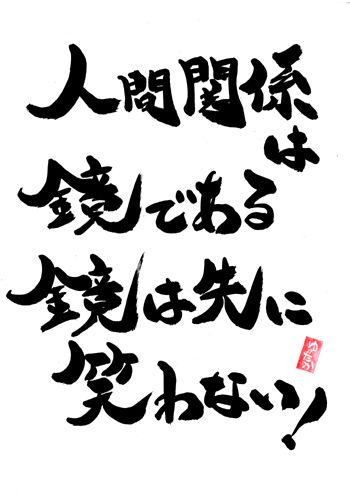 人間関係は
鏡である
鏡は先に
笑わない!
ゆたか